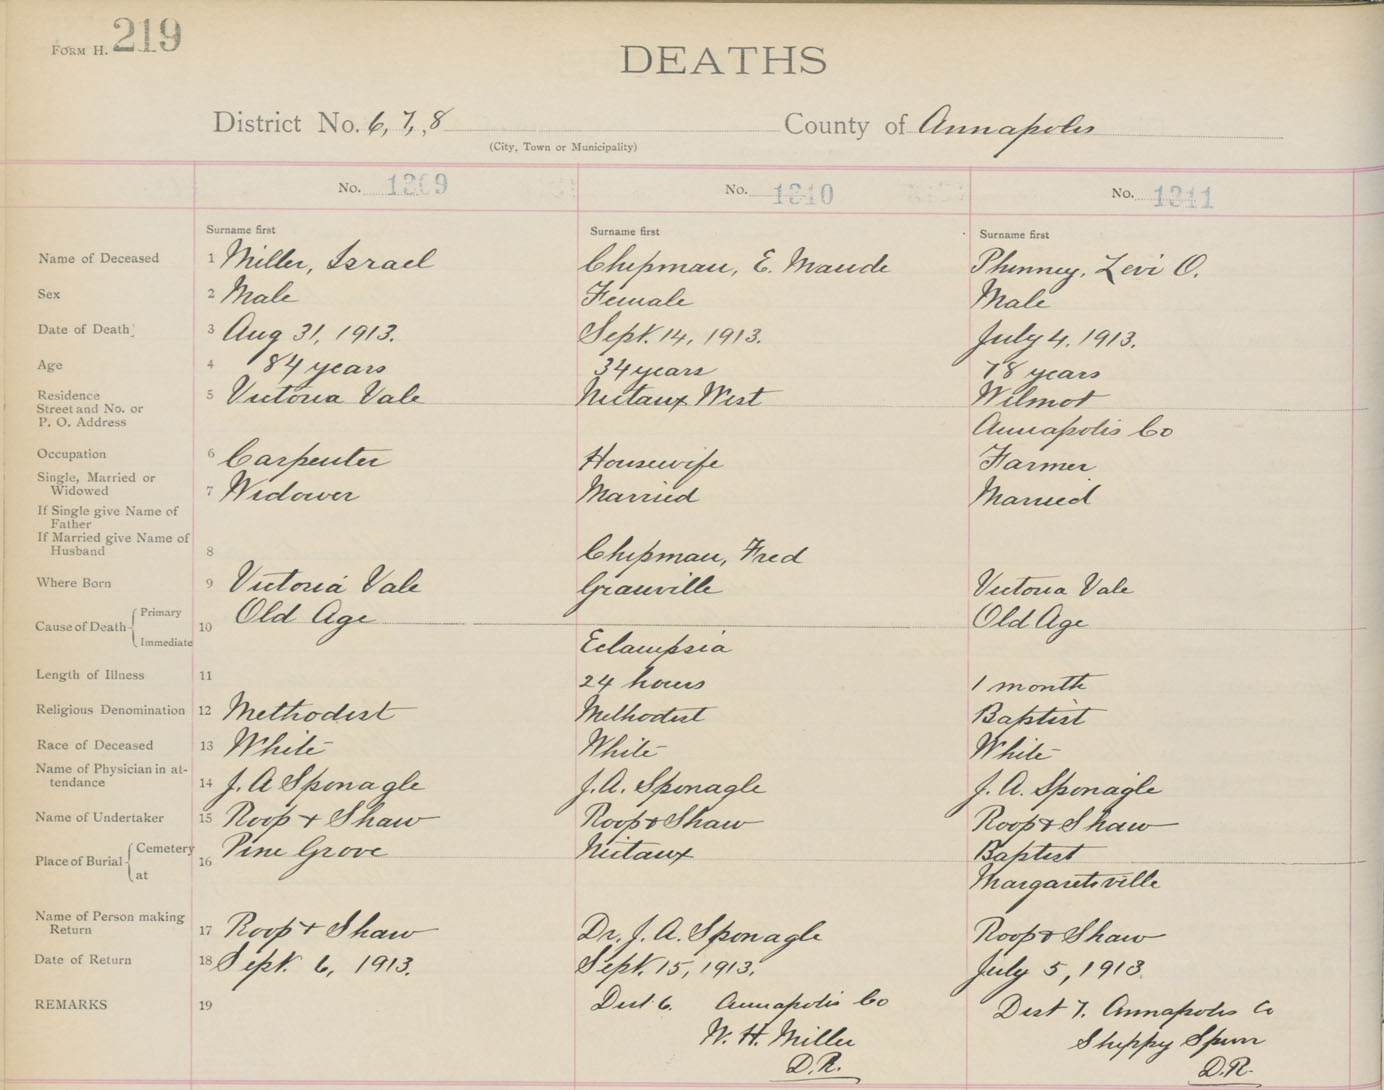 FORM H. 219
DEATHS
District No. 6, 7, 8 County of Annapolis
(City, Town or Municipality)
No. 1309 No. 1310 No. 1311
Surname first Surname first Surname first
Name of Deceased 1 Miller, Israel Chipman, E. Maude Phinney, Levi O.
Sex 2 Male Female Male
Date of Death 3 Aug 31, 1913. Sept. 14, 1913. July 4. 1913.
Age 4 84 years 34 years 78 years
Residence 5 Victoria Vale Nictaux West Wilmot
Street and No. or
P. O. Address Annapolis Co
Occupation 6 Carpenter Housewife Farmer
Single, Married or
Widowed 7 Widower Married Married
If Single give Name of
Father
If Married give Name of
Husband 8 Chipman, Fred
Where Born 9 Victoria Vale Granville Victoria Vale
Cause of Death Primary 10 Old Age Old Age
Immediate Eclampsia
Length of Illness 11 24 hours 1 month
Religious Denomination 12 Methodist Methodist Baptist
Race of Deceased 13 White White White
Name of Physician in at-
tendance 14 J. A Sponagle J. A. Sponagle J. A. Sponagle
Name of Undertaker 15 Roop & Shaw Roop & Shaw Roop & Shaw
Place of Burial Cemetery 16 Pine Grove Nictaux Baptist
at Margaretsville
Name of Person making
Return 17 Roop & Shaw Dr. J. A. Sponagle Roop & Shaw
Date of Return 18 Sept. 6, 1913. Sept. 15, 1913. July 5, 1913
REMARKS 19 Dist 6. Annapolis Co Dist 7. Annapolis Co
W. H. Miller
D.R. D.R.